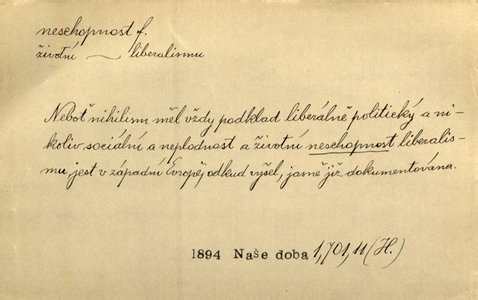 neschopnost f.
životní ~ liberalismu
Neboť nihilism měl vždy podklad liberálně politický a ni-
koliv sociální a neplodnost a životní neschopnost liberalis-
mu jest v západní Evropě, odkud vyšel, jasně již dokumentována.
1894 Naše doba 1,701,11 (H.)